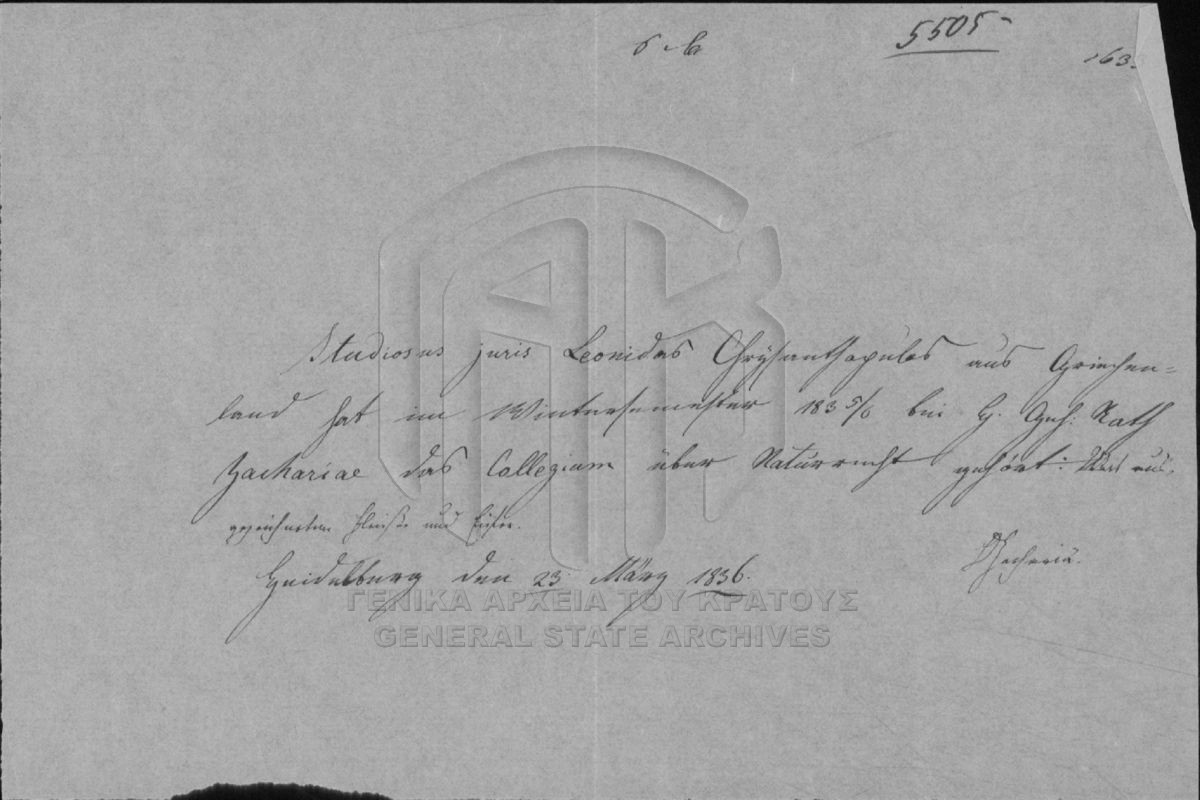 5505
163
Studiosus juris Leonidas Chrÿsanthopulos aus Griechen=
land hat im Wintersemester 183 5/6 bei H. Geh: Rath
Zachariae das Collegium über Naturrecht gehört: Mit aus,
gezeichnetem Fleiße und Eifer.
Zachariä.
Heidelberg den 23 März 1836.
ΓΕΝΙΚΑ ΑΡΧΕΙΑ ΤΟΥ ΚΡΑΤΟΥΣ
GENERAL STATE ARCHIVES